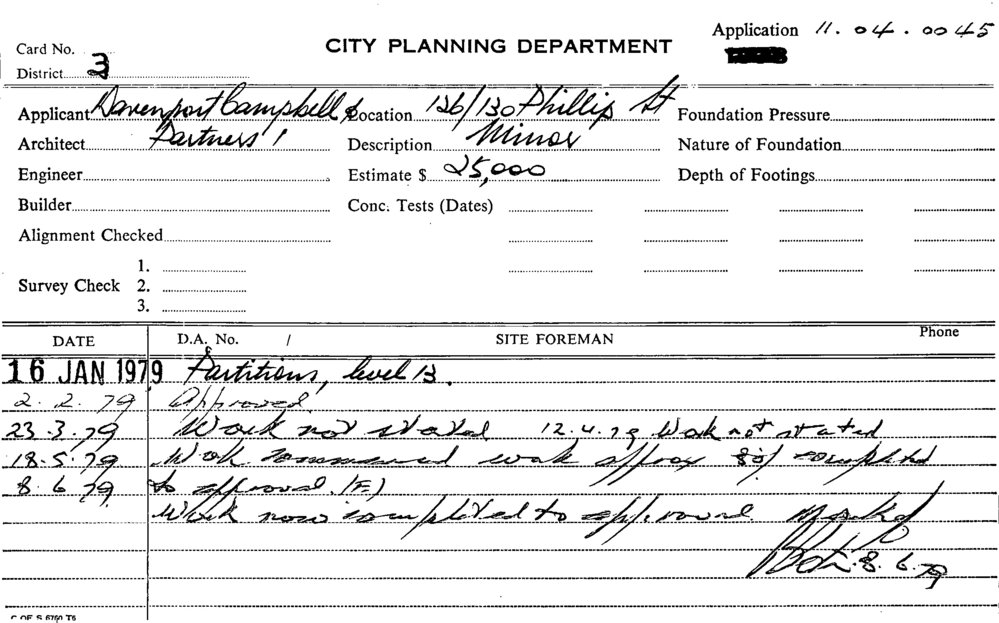 Application 11.04.0045
CITY PLANNING DEPARTMENT
Card No.
District 3
Applicant Davenport Campbell & Location 126/130 Phillip St Foundation Pressure
Architect Partners Description Minor Nature of Foundation
Engineer Estimate $ 25,000 Depth of Footings
Builder Conc. Tests (Dates)
Alignment Checked
1.
Survey Check 2.
3.
DATE D.A. No. / SITE FOREMAN Phone
16 JAN 1979 Partitions, level 13.
2.2.79 Approved
23.3.79 Work not stated 12.4.79 Work not stated
18.5.79 Work commenced work approx 80% completed
8.6.79 to approval (F.)
Work now completed to approval
8.6.79
C OF S 6760 T6